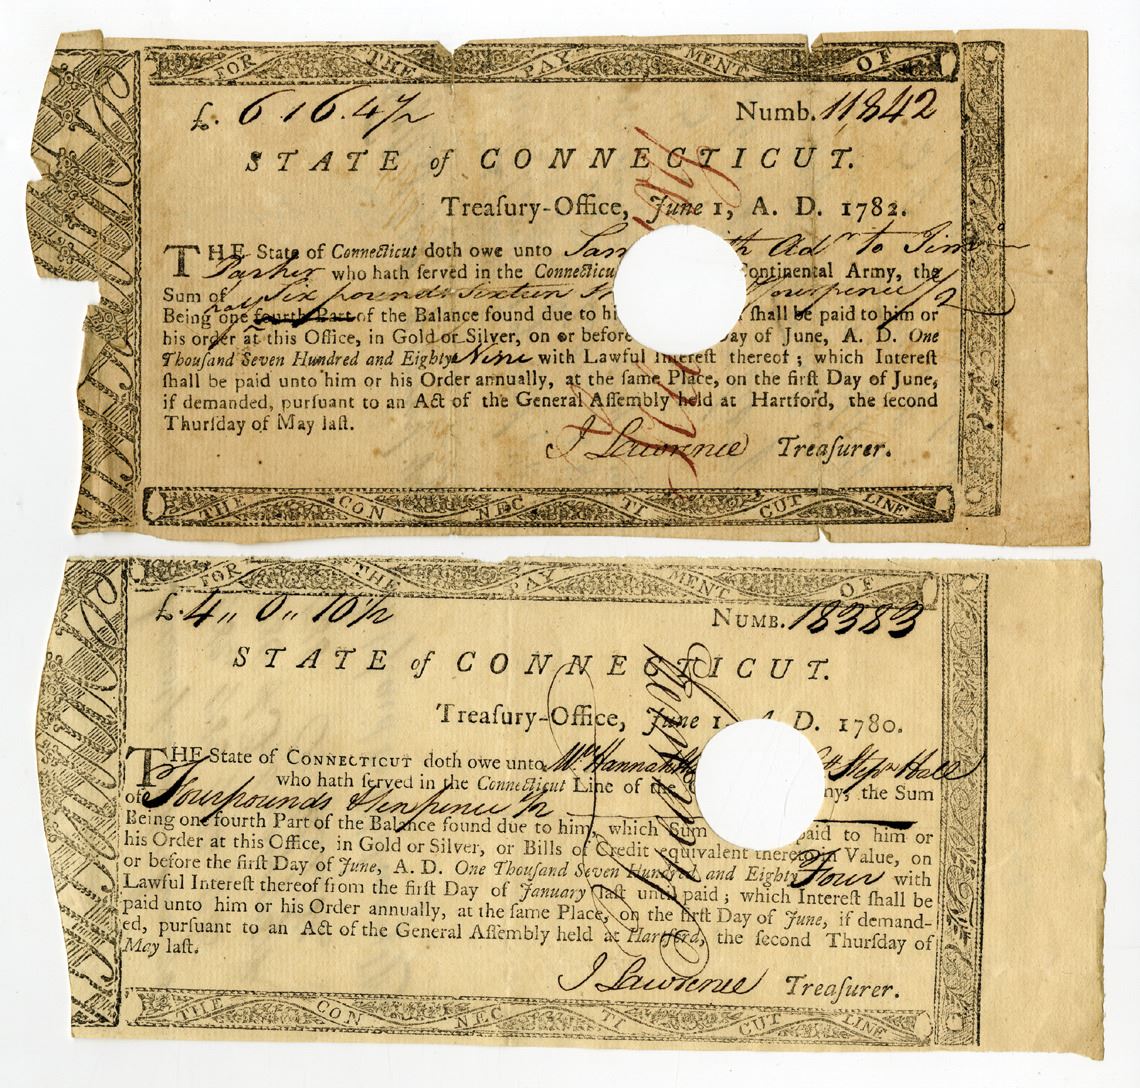 FOR THE PAY MENT OF
£. 6.16.4½ Numb. 11842
STATE of CONNECTICUT.
Treaſury-Office, June 1, A. D. 1782.
THE State of Connecticut doth owe unto Sam th Adr to Tim
Parker who hath ſerved in the Connecticu Continental Army, the
Sum of Six pounds Sixteen ourpence ½
Being one fourth Part of the Balance found due to hi ſhall be paid to him or
his order at this Office, in Gold or Silver, on or before ay of June, A. D. One
Thouſand Seven Hundred and Eighty Nine with Lawful Intereſt thereof; which Intereſt
ſhall be paid unto him or his Order annually, at the ſame Place, on the firſt Day of June,
if demanded, purſuant to an Act of the General Aſſembly held at Hartford, the ſecond
Thurſday of May laſt.
J Lawrence Treaſurer.
THE CON NEC TI CUT LINE
FOR THE PAY MENT OF
£. 4,, 0,, 10½ NUMB. 18383
STATE of CONNECTICUT.
Treaſury-Office, June 1, A. D. 1780.
THE State of CONNECTICUT doth owe unto Hannah Stepn Hall
who hath ſerved in the Connecticut Line of the my, the Sum
of Four pounds & Ten pence ½
Being one fourth Part of the Balance found due to him, which Sum paid to him or
his Order at this Office, in Gold or Silver, or Bills of Credit equivalent thereto in Value, on
or before the firſt Day of June, A. D. One Thouſand Seven Hundred and Eighty Four with
Lawful Intereſt thereof from the firſt Day of January laſt until paid; which Intereſt ſhall be
paid unto him or his Order annually, at the ſame Place, on the firſt Day of June, if demand-
ed, purſuant to an Act of the General Aſſembly held at Hartford, the ſecond Thurſday of
May laſt.
J Lawrence Treaſurer.
THE CON NEC TI CUT LINE